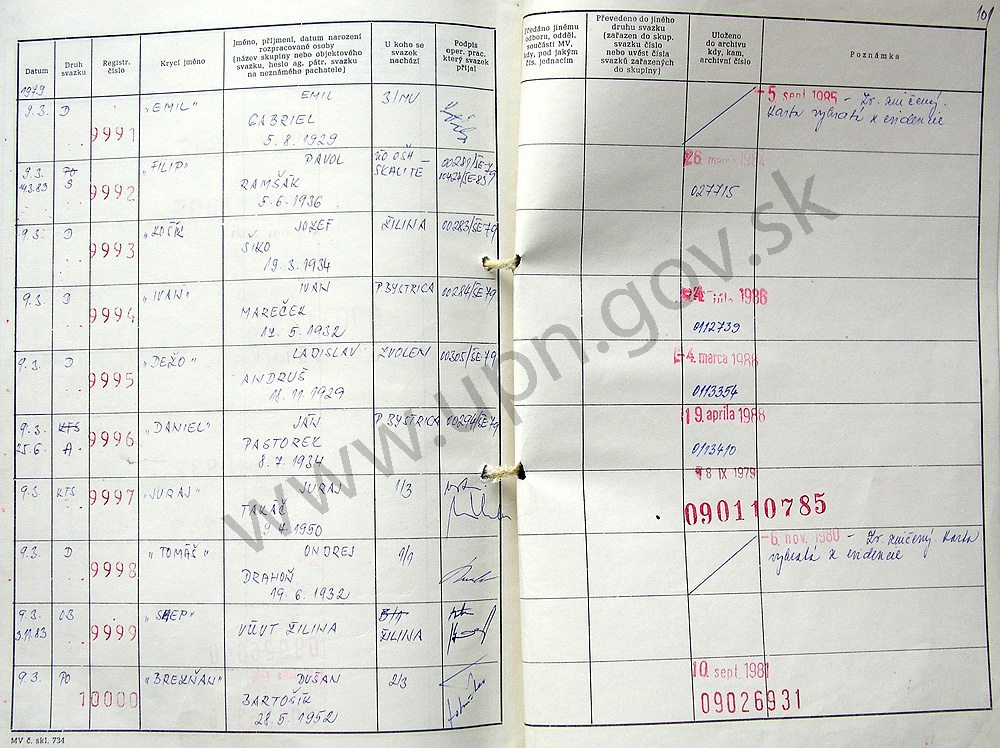 101
Datum
Druh svazku
Registr. číslo
Krycí jméno
Jméno, příjmení, datum narození
rozpracované osoby
(název skupiny nebo objektového
svazku, heslo ag. pátr. svazku
na neznámého pachatele)
U koho se
svazek
nachází
Podpis
oper. prac.
který svazek
přijal
Předáno jinému
odboru, odděl.
součásti MV,
kdy, pod jakým
čís. jednacím
Převedeno do jiného
druhu svazku
(zařazen do skup.
svazku číslo
nebo uvést čísla
svazků zařazených
do skupiny)
Uloženo
do archivu
kdy, kam,
archivní číslo
Poznámka
1979
9.3. D 9991 "EMIL" EMIL 3/MV
GABRIEL
5.8.1929
5 sept 1985 – Zv. zničený.
Karta vybratá z evidencie
9.3. 9992 "FILIP" PAVOL ÚO OŠH – SKALITÉ 00281/ŠE-79
S RAMŠÁK
5.6.1936
027715
9.3. D 9993 JOZEF ŽILINA 00283/ŠE-79
ŠIKO
19.3.1934
9.3. D 9994 "IVAN" IVAN P BYSTRICA 00284/ŠE-79
MAREČEK
5.1932
1986
0112739
9.3. D 9995 "DEŽO" LADISLAV ZVOLEN 00305/ŠE-79
ANDRUŠ
18.11.1929
4. marca 1988
0113354
9.3. KTS 9996 "DANIEL" JÁN P BYSTRICA 00294/ŠE-79
25.6. A PASTOREK
8.7.1934
19. apríla 1988
0113410
9.3. KTS 9997 "JURAJ" JURAJ 1/3
TAKÁČ
4.1950
IX 1979
090110785
9.3. D 9998 "TOMÁŠ" ONDREJ 1/1
DRAHOŇ
19.6.1932
6. nov. 1980 – Zv. zničený Karta
vybratá z evidencie
9.3. OB 9999
3.11.83 VÚVT ŽILINA ŽILINA
9.3. PO 10000 DUŠAN 2/3
BARTOŠÍK
28.5.1952
10. sept. 1981
09026931
MV č. skl. 734
www.upn.gov.sk